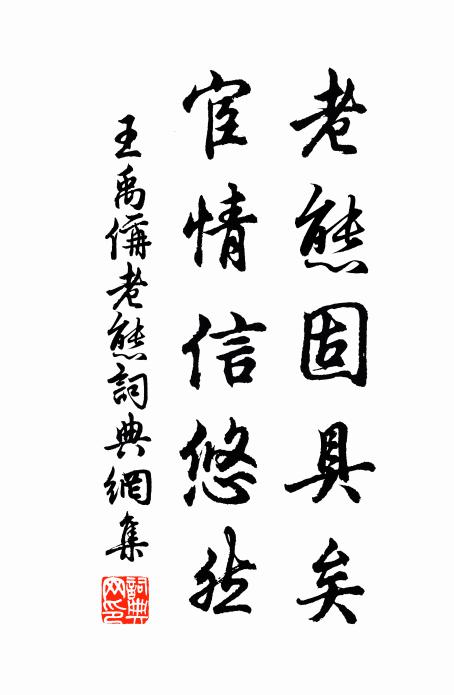 老態固具矣
宦情信悠然
王禹偁老態詞典網集
詞典网印